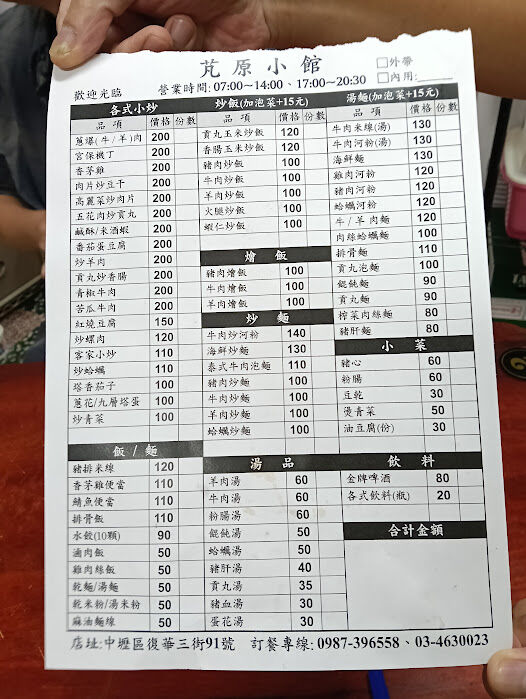 芃原小館
□外帶
□內用:
歡迎光臨
營業時間: 07:00~14:00、17:00~20:30
各式小炒
品項 價格 份數
蔥爆(牛/羊)肉 200
宮保機丁 200
香茅雞 200
肉片炒豆干 200
高麗菜炒肉片 200
五花肉炒貢丸 200
鹹酥/米酒蝦 200
番茄蛋豆腐 200
炒羊肉 200
貢丸炒香腸 200
青椒牛肉 200
苦瓜牛肉 200
紅燒豆腐 150
炒螺肉 120
客家小炒 110
炒蛤蠣 110
塔香茄子 100
蔥花/九層塔蛋 100
炒青菜 100
飯/麵
豬排米線 120
香茅雞便當 110
鯖魚便當 110
排骨飯 110
水餃(10顆) 90
滷肉飯 50
雞肉絲飯 50
乾麵/湯麵 50
乾米粉/湯米粉 50
麻油麵線 50
炒飯(加泡菜+15元)
品項 價格 份數
貢丸玉米炒飯 120
香腸玉米炒飯 120
豬肉炒飯 100
牛肉炒飯 100
羊肉炒飯 100
火腿炒飯 100
蝦仁炒飯 100
燴飯
豬肉燴飯 100
牛肉燴飯 100
羊肉燴飯 100
炒麵
牛肉炒河粉 140
海鮮炒麵 130
泰式牛肉泡麵 110
豬肉炒麵 100
牛肉炒麵 100
羊肉炒麵 100
蛤蠣炒麵 100
湯品
羊肉湯 60
牛肉湯 60
粉腸湯 60
餛飩湯 50
蛤蠣湯 50
豬肝湯 40
貢丸湯 35
豬血湯 30
蛋花湯 30
湯麵(加泡菜+15元)
品項 價格 份數
牛肉米線(湯) 130
牛肉河粉(湯) 130
海鮮麵 130
雞肉河粉 120
豬肉河粉 120
蛤蠣河粉 120
牛/羊肉麵 120
肉絲蛤蠣麵 100
排骨麵 110
貢丸泡麵 100
餛飩麵 90
貢丸麵 90
榨菜肉絲麵 80
豬肝麵 80
小菜
豬心 60
粉腸 60
豆乾 30
燙青菜 50
油豆腐(份) 30
飲料
金牌啤酒 80
各式飲料(瓶) 20
合計金額
店址:中壢區復華三街91號 訂餐專線: 0987-396558、03-4630023